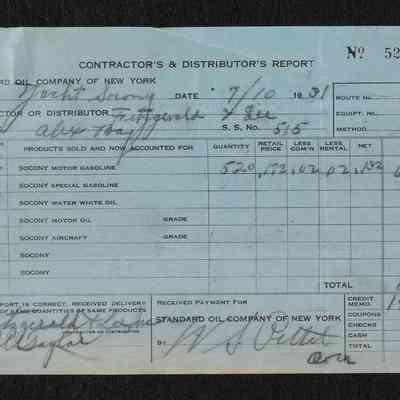 CONTRACTOR'S & DISTRIBUTOR'S REPORT
Nº 52
RD OIL COMPANY OF NEW YORK
Yacht Socony DATE 7/10 1931
ROUTE No.
CTOR OR DISTRIBUTOR Fitzgerald & Lee
EQUIPT. No.
Alex Bay S. S. No. 515
METHOD
PRODUCTS SOLD AND NOW ACCOUNTED FOR QUANTITY RETAIL PRICE LESS COM'N LESS RENTAL NET
SOCONY MOTOR GASOLINE 520 .172 .02 .02 .132
SOCONY SPECIAL GASOLINE
SOCONY WATER WHITE OIL
SOCONY MOTOR OIL GRADE
SOCONY AIRCRAFT GRADE
SOCONY
SOCONY
TOTAL
PORT IS CORRECT, RECEIVED DELIVERY
OF SAME QUANTITIES OF SAME PRODUCTS
CONTRACTOR OR DISTRIBUTOR
Taylor
RECEIVED PAYMENT FOR
STANDARD OIL COMPANY OF NEW YORK
By W S Pettit
CREDIT MEMO.
COUPONS
CHECKS
CASH
TOTAL